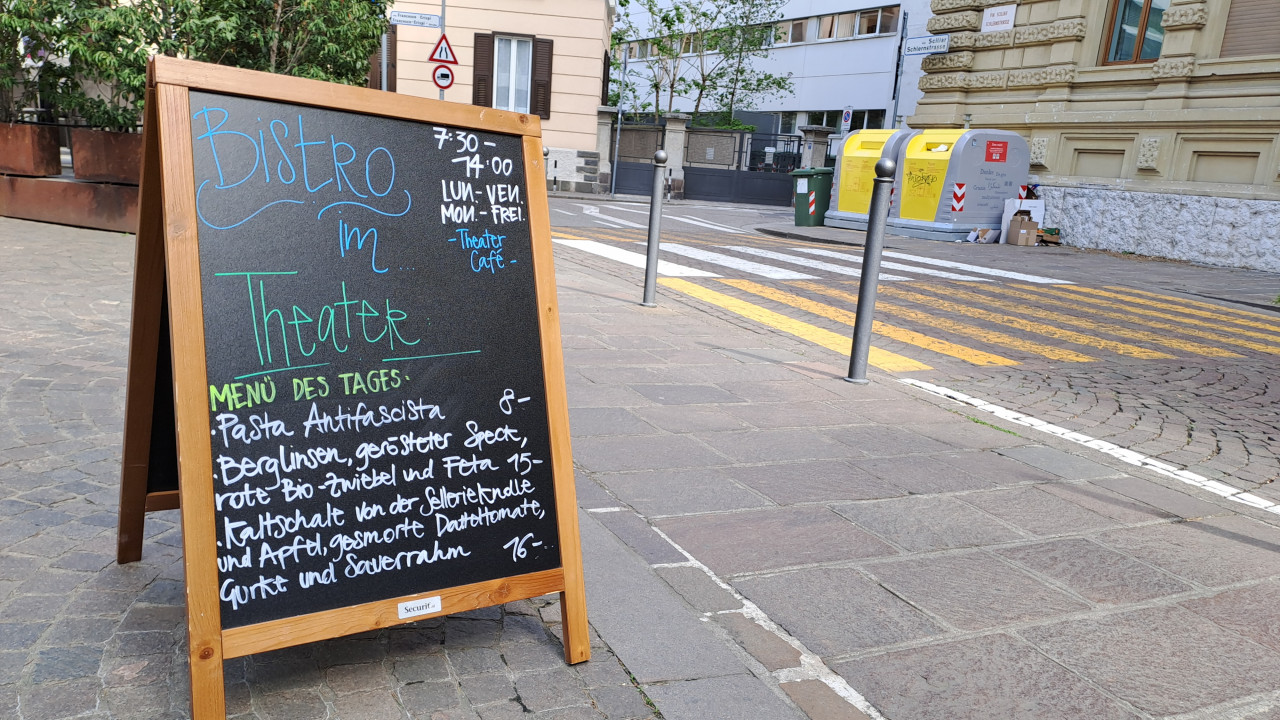 Bistro
im...
Theater
7:30-
14:00
LUN.-VEN.
MON.-FREI.
-Theater
Café-
MENÜ DES TAGES:
·Pasta Antifascista 8-
·Berglinsen, gerösteter Speck,
rote Bio-Zwiebel und Feta 15-
·Kaltschale von der Sellerieknolle
und Apfel, gesmorte Datteltomate,
Gurke und Sauerrahm 16-
Securit